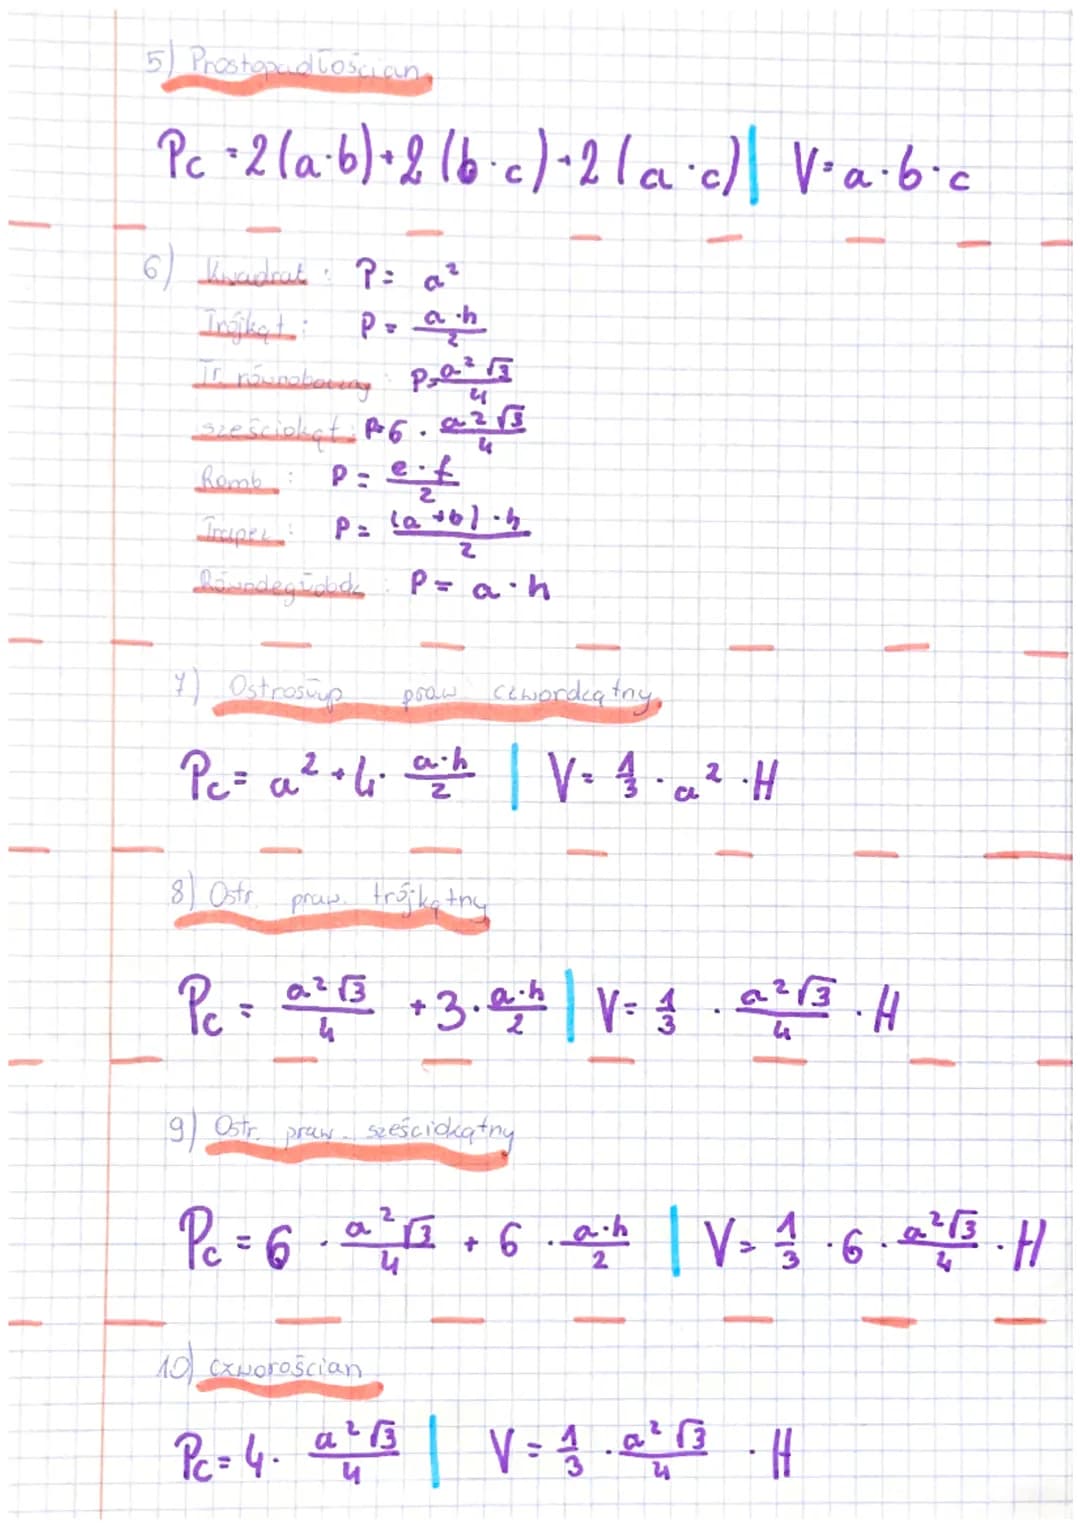 5) Prostopadłościan
Pc = 2(a·b)+2(b·c)+2(a·c) | V=a·b·c
6) Kwadrat : P= a²
Trójkąt : P = a·h/2
Tr. równoboczny : P= a²√3/4
sześciokąt : P=6 · a²√3/4
Romb : P = e·f/2
Trapez : P = (a+b)·h/2
Równoległobok : P= a·h
7) Ostrosłup praw czworokątny
Pc= a²+4· a·h/2 | V= 1/3 · a² ·H
8) Ostr. praw. trójkątny
Pc = a²√3/4 +3· a·h/2 | V= 1/3 · a²√3/4 ·H
9) Ostr. praw. sześciokątny
Pc = 6 · a²√3/4 + 6 · a·h/2 | V= 1/3 ·6· a²√3/4 ·H
10) czworościan
Pc= 4· a²√3/4 | V = 1/3 · a²√3/4 ·H